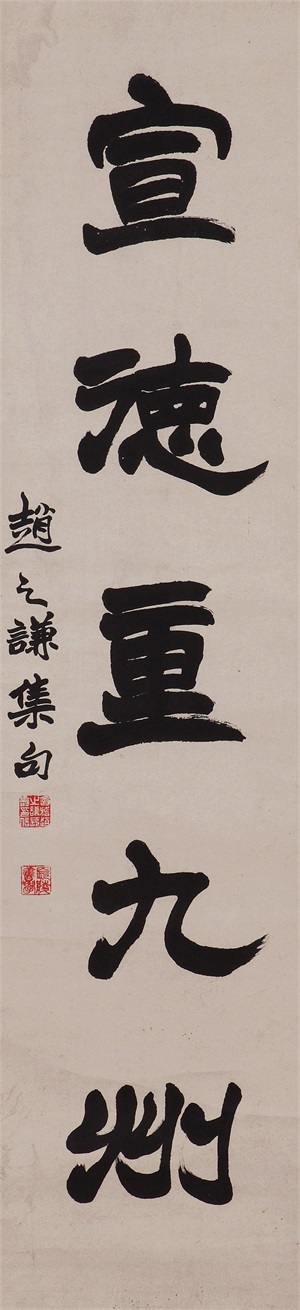 宣德重九州
趙之謙集句